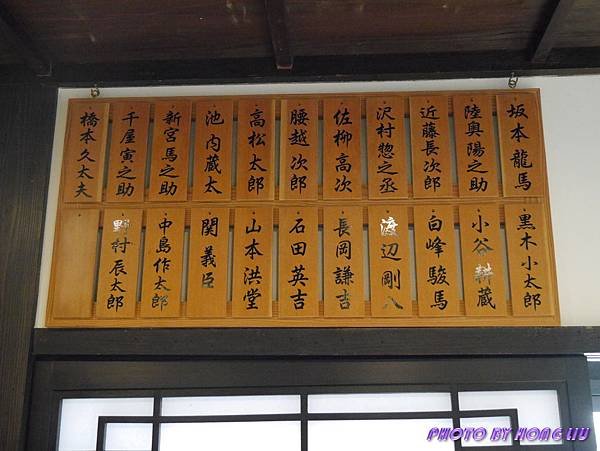 坂本龍馬
陸奥陽之助
近藤長次郎
沢村惣之丞
佐柳高次
腰越次郎
高松太郎
池内蔵太
新宮馬之助
千屋寅之助
橋本久太夫
黒木小太郎
小谷耕蔵
白峰駿馬
渡辺剛八
長岡謙吉
石田英吉
山本洪堂
関義臣
中島作太郎
野村辰太郎
PHOTO BY HONG LIU